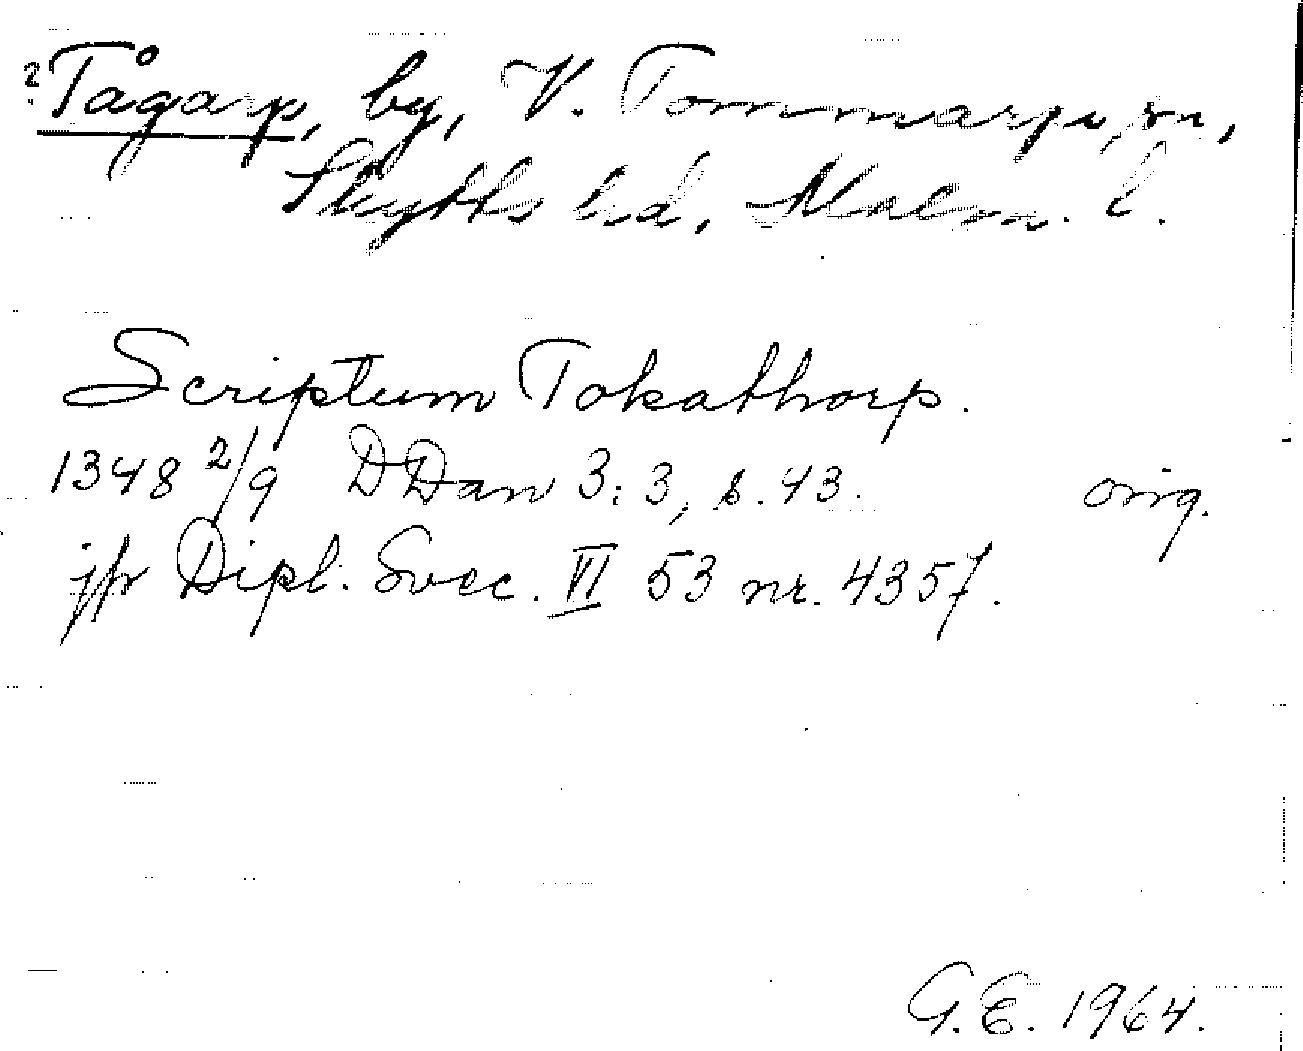 ? Tågarp, by, V. Tommarps sn,
Skytts hd, Malm. l.
Scriptum Tokathorp.
1348 2/9 DDan 3:3, s. 43. orig.
jfr Dipl. Svec. VI 53 nr. 4357.
G.E. 1964.